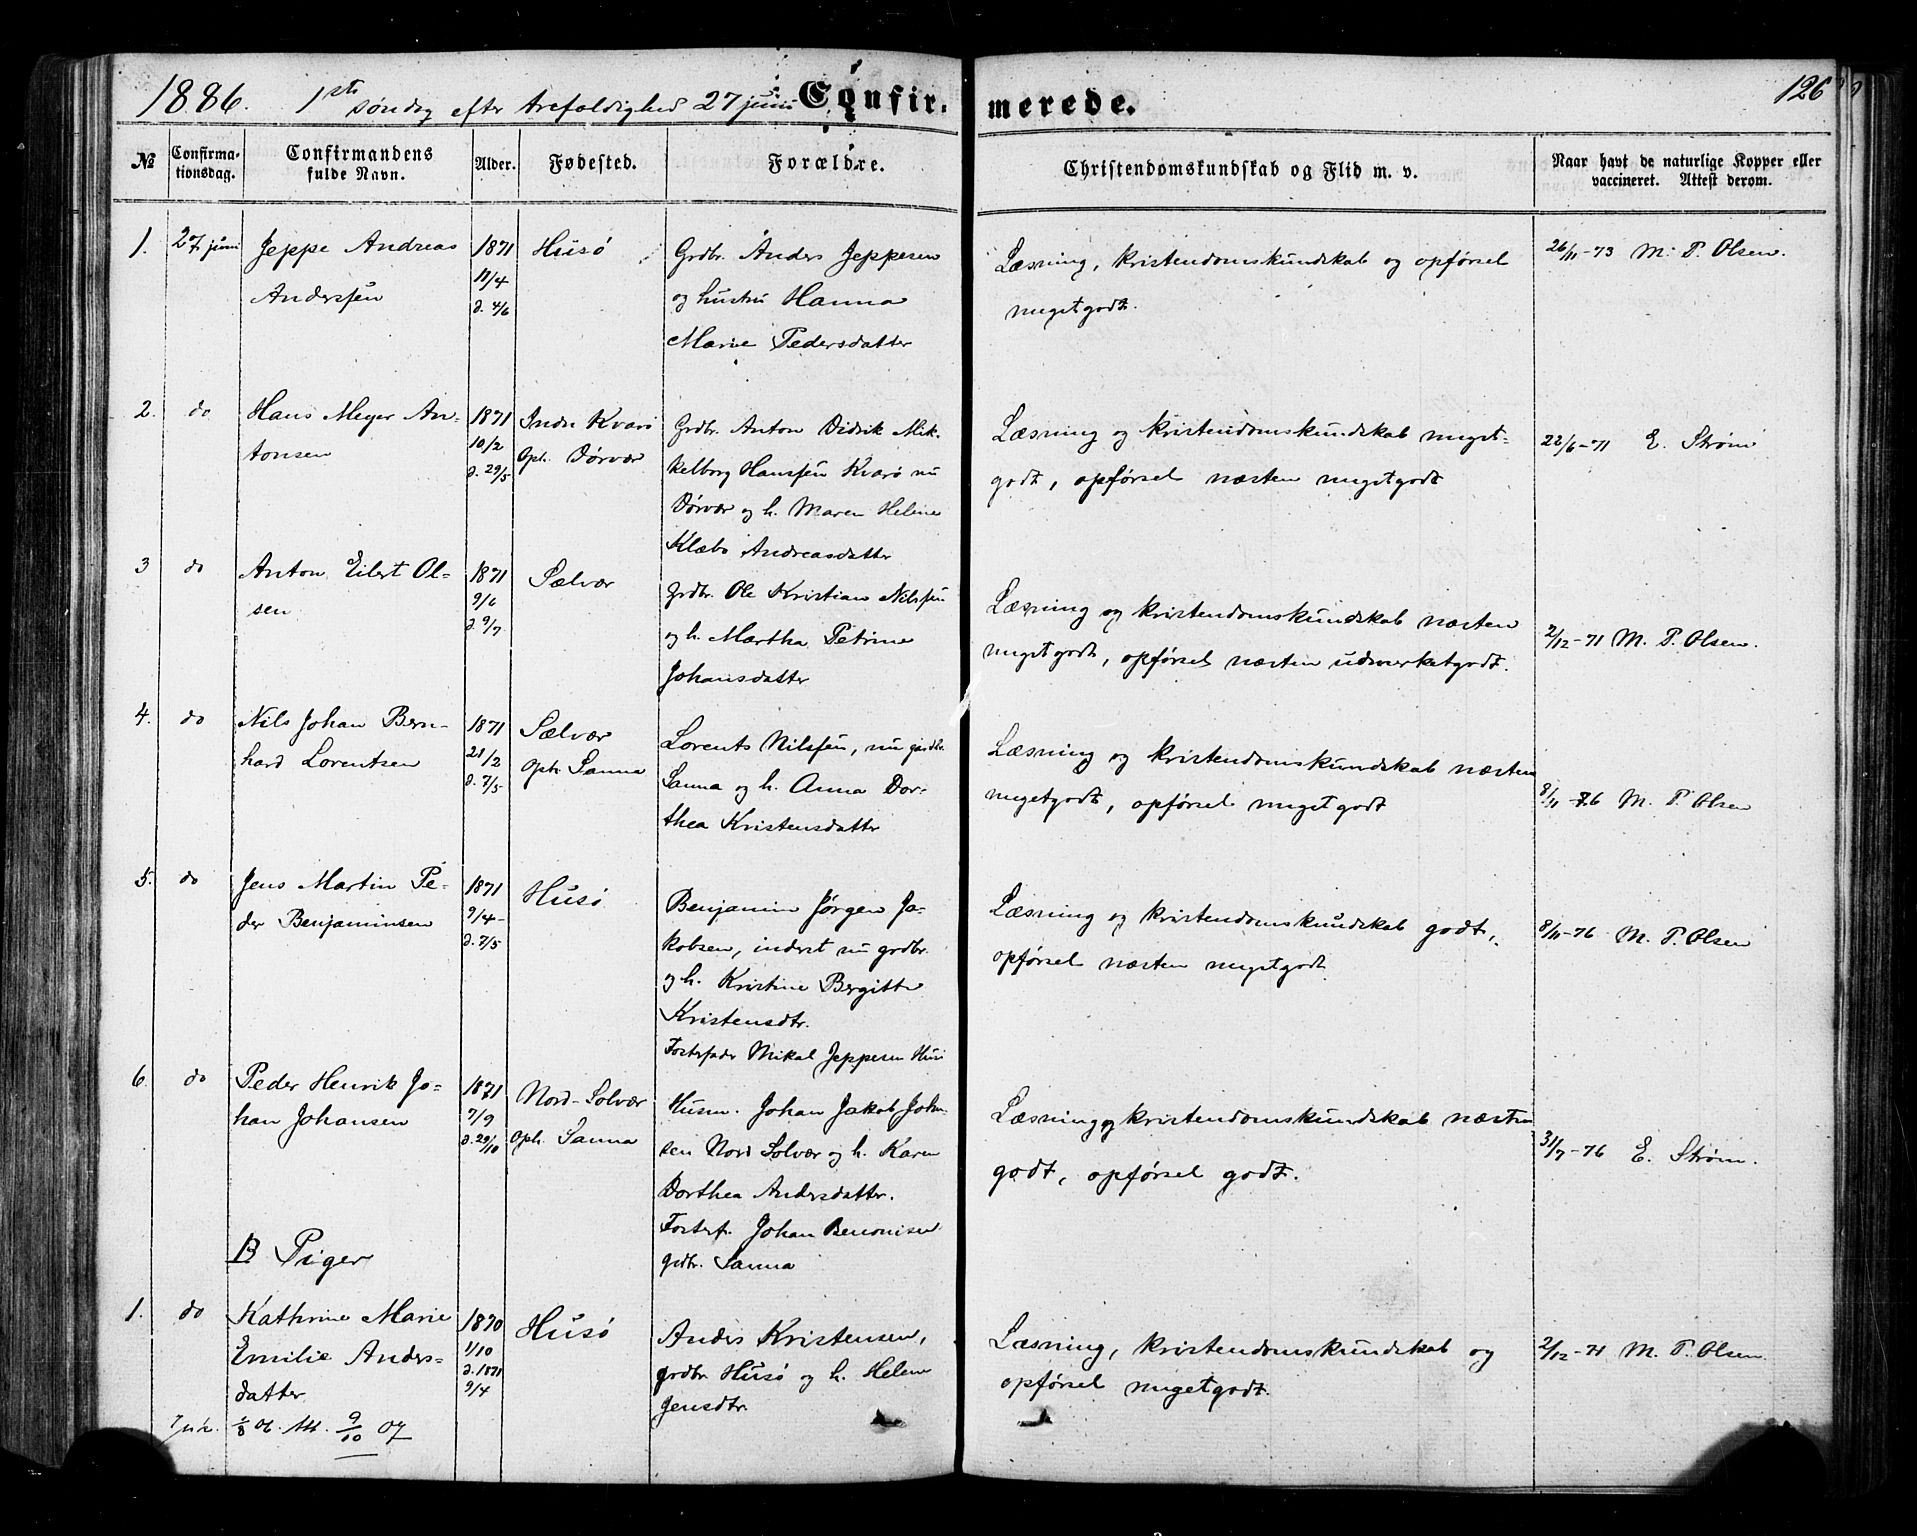 1886. 1ste søndag efter trefoldighed 27 juni Confirmerede. 126
№
Confirmationsdag.
Confirmandens fulde Navn.
Alder.
Fødested.
Forældre.
Christendomskundskab og Flid m. v.
Naar havt de naturlige Kopper eller vaccineret. Attest derom.
1. 27 juni
Jeppe Andreas
Andersen
1871
11/4
d. 4/6
Husø
Grdbr. Anders Jeppesen
og hustru Hanna
Marie Pedersdatter
Læsning, kristendomskundskab og opførsel
megetgodt.
26/11-73 M. P. Olsen.
2. do
Hans Meyer An-
tonsen
1871
10/2
d. 29/5
Indre Kvarø
Oph. Dørvær
Grdbr. Anton Didrik Mik-
kelborg Hanssen Kvarø nu
Dørvær og h. Maren Heline
Klæbo Andreasdatter
Læsning og kristendomskundskab meget-
godt, opførsel næsten megetgodt
22/6-71 E. Strøm
3 do
Anton Eilert Ol-
sen
1871
9/6
d. 9/7
Sælvær
Grdbr. Ole Kristian Nilssen
og h. Martha Petrine
Johansdatter
Læsning og kristendomskundskab næsten
megetgodt, opførsel næsten udmerketgodt.
2/12-71 M. P. Olsen.
4. do
Nils Johan Bern-
hard Lorentsen
1871
21/2
d. 7/5
Sælvær
Oph. Sanna
Lorents Nilssen, nu gardbr.
Sanna og h. Anna Dor-
thea Kristensdatter
Læsning og kristendomskundskab næsten
megetgodt, opførsel megetgodt
8/11-76 M. P. Olsen
5. do
Jens Martin Pe-
der Benjaminsen
1871
9/4
d. 7/5
Husø
Benjamin Jørgen Ja-
kobsen, inderst nu grdbr.
og h. Kristine Bergitte
Kristensdtr.
Fosterfader Mikal Jeppesen Husø
Læsning og kristendomskundskab godt,
opførsel næsten megetgodt
8/11-76 M. P. Olsen
6. do
Peder Henrik Jo-
han Johansen
1871
7/9
d. 29/10
Nord-Solvær
Oph. Sanna
Husm. Johan Jakob Johan-
sen Nord Solvær og h. Karen
Dorthea Andersdatter.
Fosterf. Johan Benonisen
grdbr. Sanna
Læsning og kristendomskundskab næsten
godt, opførsel godt.
31/7-76 E. Strøm.
B Piger
1. do
Kathrine Marie
Emilie Anders-
datter
1870
1/10
d. 1871
9/4
Husø
Anders Kristensen,
grdbr. Husø og h. Helene
Jensdtr.
Læsning, kristendomskundskab og
opførsel megetgodt.
2/12-71 M. P. Olsen.
06. Att. 9/10 07